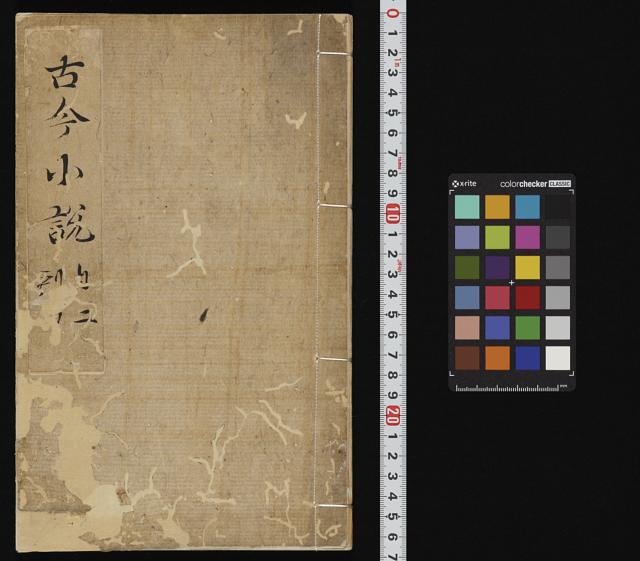 古今小說
0
1
2
3
4
5
6
7
8
9
10
1
2
3
4
5
6
7
8
9
20
1
2
3
4
5
6
7
x-rite colorchecker CLASSIC
mm